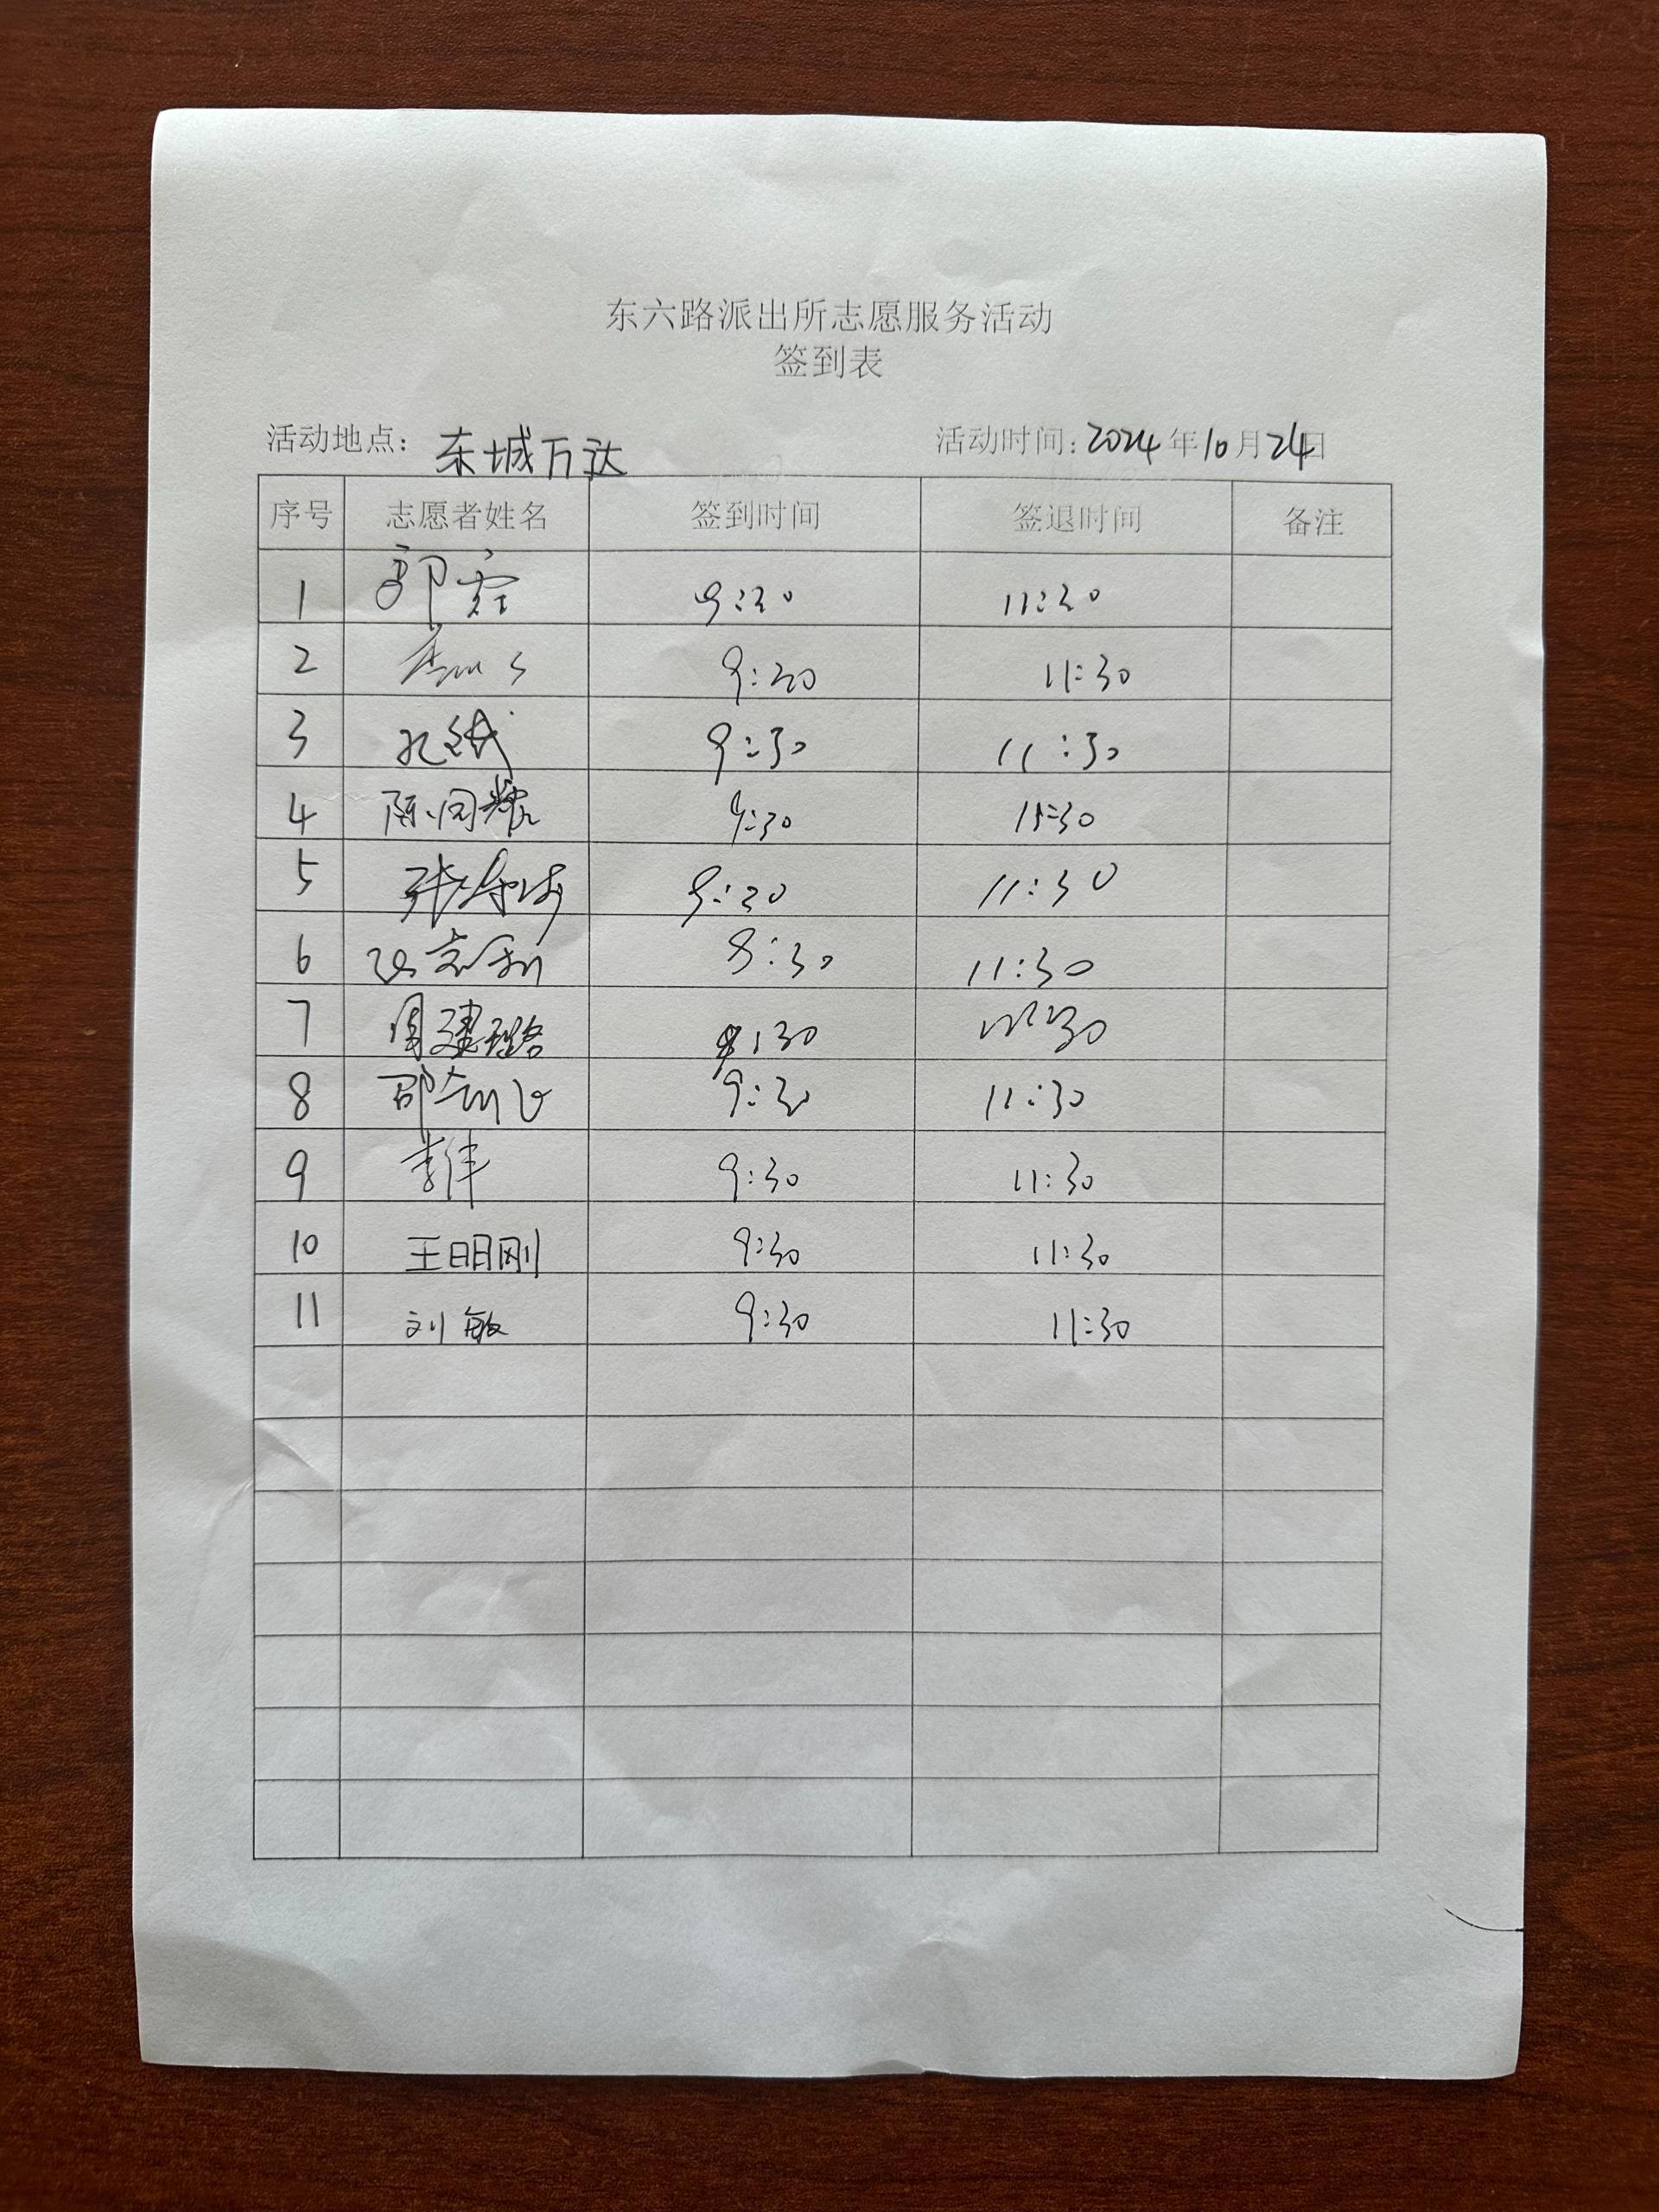 东六路派出所志愿服务活动
签到表
活动地点：东城万达 活动时间：2024年10月24日
序号 志愿者姓名 签到时间 签退时间 备注
1 郭 9:30 11:30
2 9:30 11:30
3 孔 9:30 11:30
4 陈同耀 9:30 11:30
5 张 9:30 11:30
6 8:30 11:30
7 周建璐 9:30 11:30
8 邵 9:30 11:30
9 李伟 9:30 11:30
10 王明刚 9:30 11:30
11 刘敏 9:30 11:30